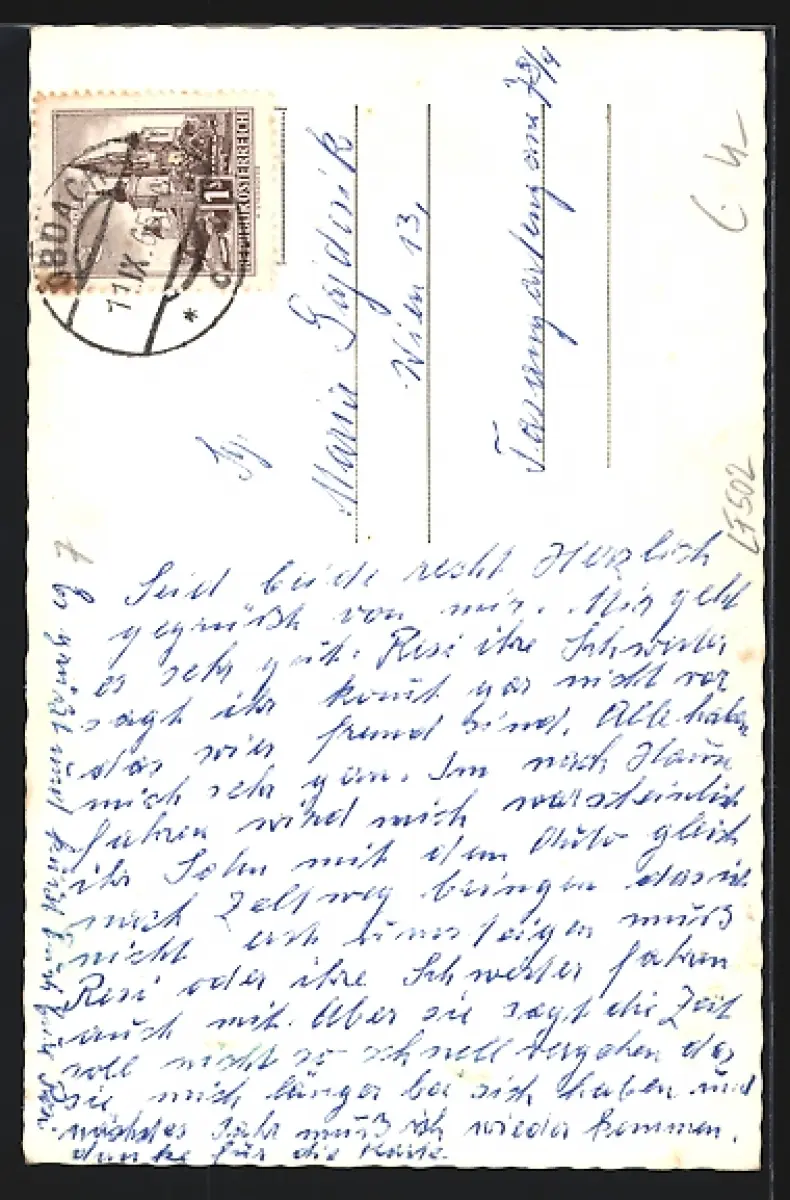 REPUBLIK ÖSTERREICH
1
OBDACH
11.IX.6
Maria
Wien 13,
73/4
LF502
Seid beide recht Herzlich
gegrüßt von mir. Mir geht
es sehr gut. Resi ihre Schwester
sagt ihr komt gar nicht vor
das wier fremd sind. Alle haben
mich sehr gern. Im nach Hause
fahren wird mich warscheinlich
ihr Sohn mit dem Auto gleich
nach Zeltweg bringen das ich
nicht erst umsteigen muß
Resi oder ihre Schwester fahren
auch mit. Aber sie sagt die Zeit
soll nicht so schnell vergehen das
sie mich länger bei sich haben und
nächstes Jahr muß ich wieder kommen.
danke für die Karte.
Es grüßt und küßt Euch Eure